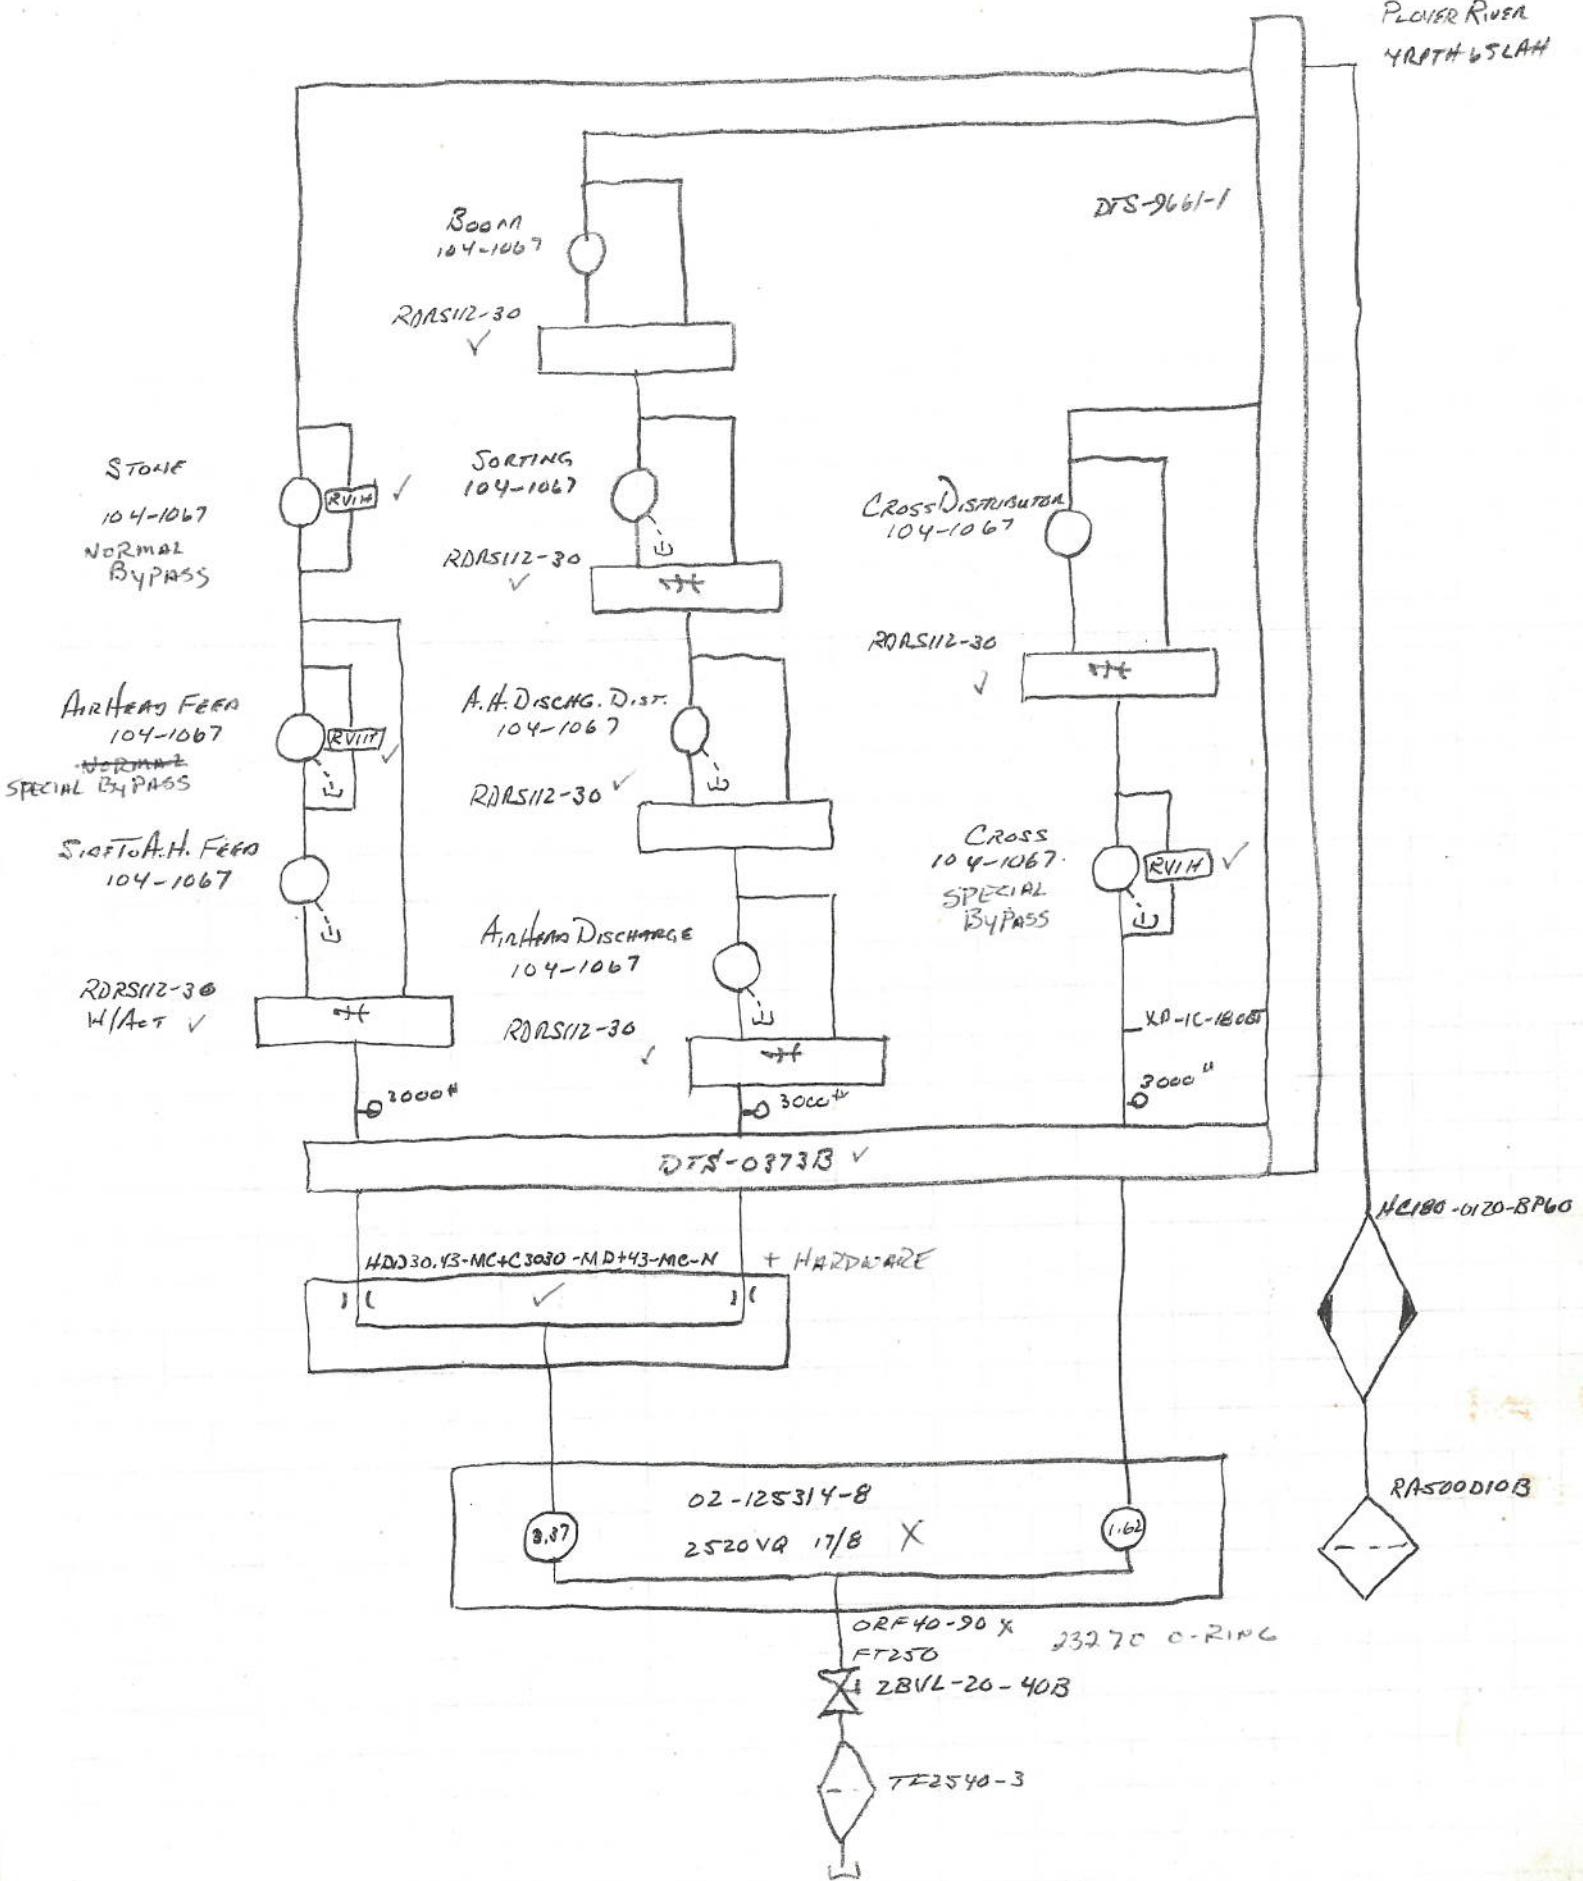 PLOVER RIVER
4RPTH65LAH
DTS-9661-1
BOOM
104-1067
RDRS112-30
STONE
104-1067
NORMAL
BYPASS
RV1H
SORTING
104-1067
RDRS112-30
CROSS DISTRIBUTOR
104-1067
RDRS112-30
AIRHEAD FEED
104-1067
NORMAL
SPECIAL BYPASS
RV1H
A.H. DISCHG. DIST.
104-1067
RDRS112-30
SIDE TO A.H. FEED
104-1067
CROSS
104-1067
SPECIAL
BYPASS
RV1H
AIRHEAD DISCHARGE
104-1067
RDRS112-30
RDRS112-30
W/ACT
3000#
3000#
3000#
DTS-0373B
HC180-0120-BP60
HDD30.43-MC+C3030-MD+43-MC-N + HARDWARE
02-125314-8
2520VQ 17/8 X
3.37
1.62
RA500D10B
ORF40-90 X
23270 O-RING
FT250
ZBVL-20-40B
TF2540-3